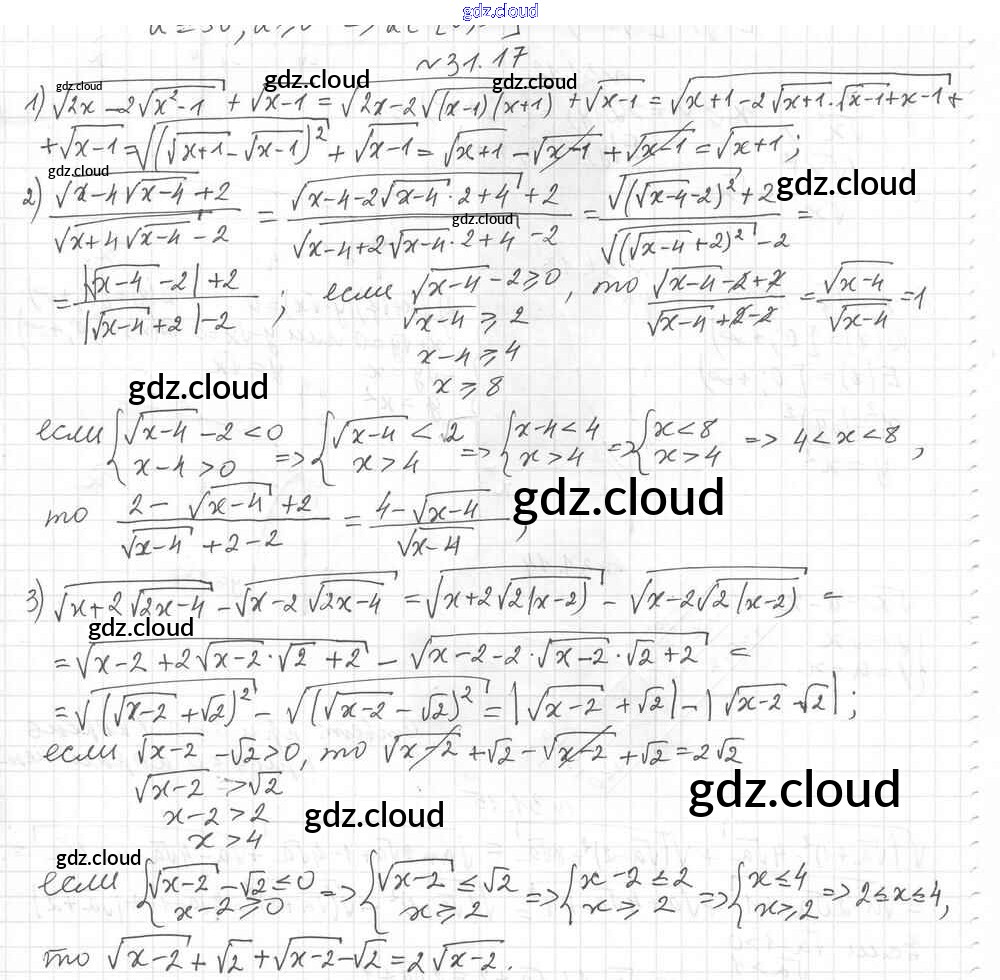 gdz.cloud
№31.17
1) √(2x-2√(x²-1)) + √(x-1) = √(2x-2√((x-1)(x+1))) + √(x-1) = √(x+1-2√(x+1)·√(x-1)+x-1) +
+√(x-1) = √((√(x+1)-√(x-1))²) + √(x-1) = √(x+1) - √(x-1) + √(x-1) = √(x+1);
2) (√(x-4√(x-4))+2)/(√(x+4√(x-4))-2) = (√(x-4-2√(x-4)·2+4)+2)/(√(x-4+2√(x-4)·2+4)-2) = (√((√(x-4)-2)²)+2)/(√((√(x-4)+2)²)-2) =
= (|√(x-4)-2|+2)/(|√(x-4)+2|-2); если √(x-4)-2≥0, то (√(x-4)-2+2)/(√(x-4)+2-2) = √(x-4)/√(x-4) = 1
√(x-4) ≥ 2
x-4 ≥ 4
x ≥ 8
gdz.cloud
если {√(x-4)-2<0 x-4>0 => {√(x-4)<2 x>4 => {x-4<4 x>4 => {x<8 x>4 => 4<x<8,
то (2-√(x-4)+2)/(√(x-4)+2-2) = (4-√(x-4))/√(x-4);
gdz.cloud
3) √(x+2√(2x-4)) - √(x-2√(2x-4)) = √(x+2√(2(x-2))) - √(x-2√(2(x-2))) =
gdz.cloud
= √(x-2+2√(x-2)·√2+2) - √(x-2-2·√(x-2)·√2+2) =
= √((√(x-2)+√2)²) - √((√(x-2)-√2)²) = |√(x-2)+√2| - |√(x-2)-√2|;
если √(x-2)-√2>0, то √(x-2)+√2-√(x-2)+√2 = 2√2
√(x-2) > √2
gdz.cloud
x-2 > 2
gdz.cloud
x > 4
gdz.cloud
если {√(x-2)-√2≤0 x-2≥0 => {√(x-2)≤√2 x≥2 => {x-2≤2 x≥2 => {x≤4 x≥2 => 2≤x≤4,
то √(x-2)+√2+√(x-2)-√2 = 2√(x-2).